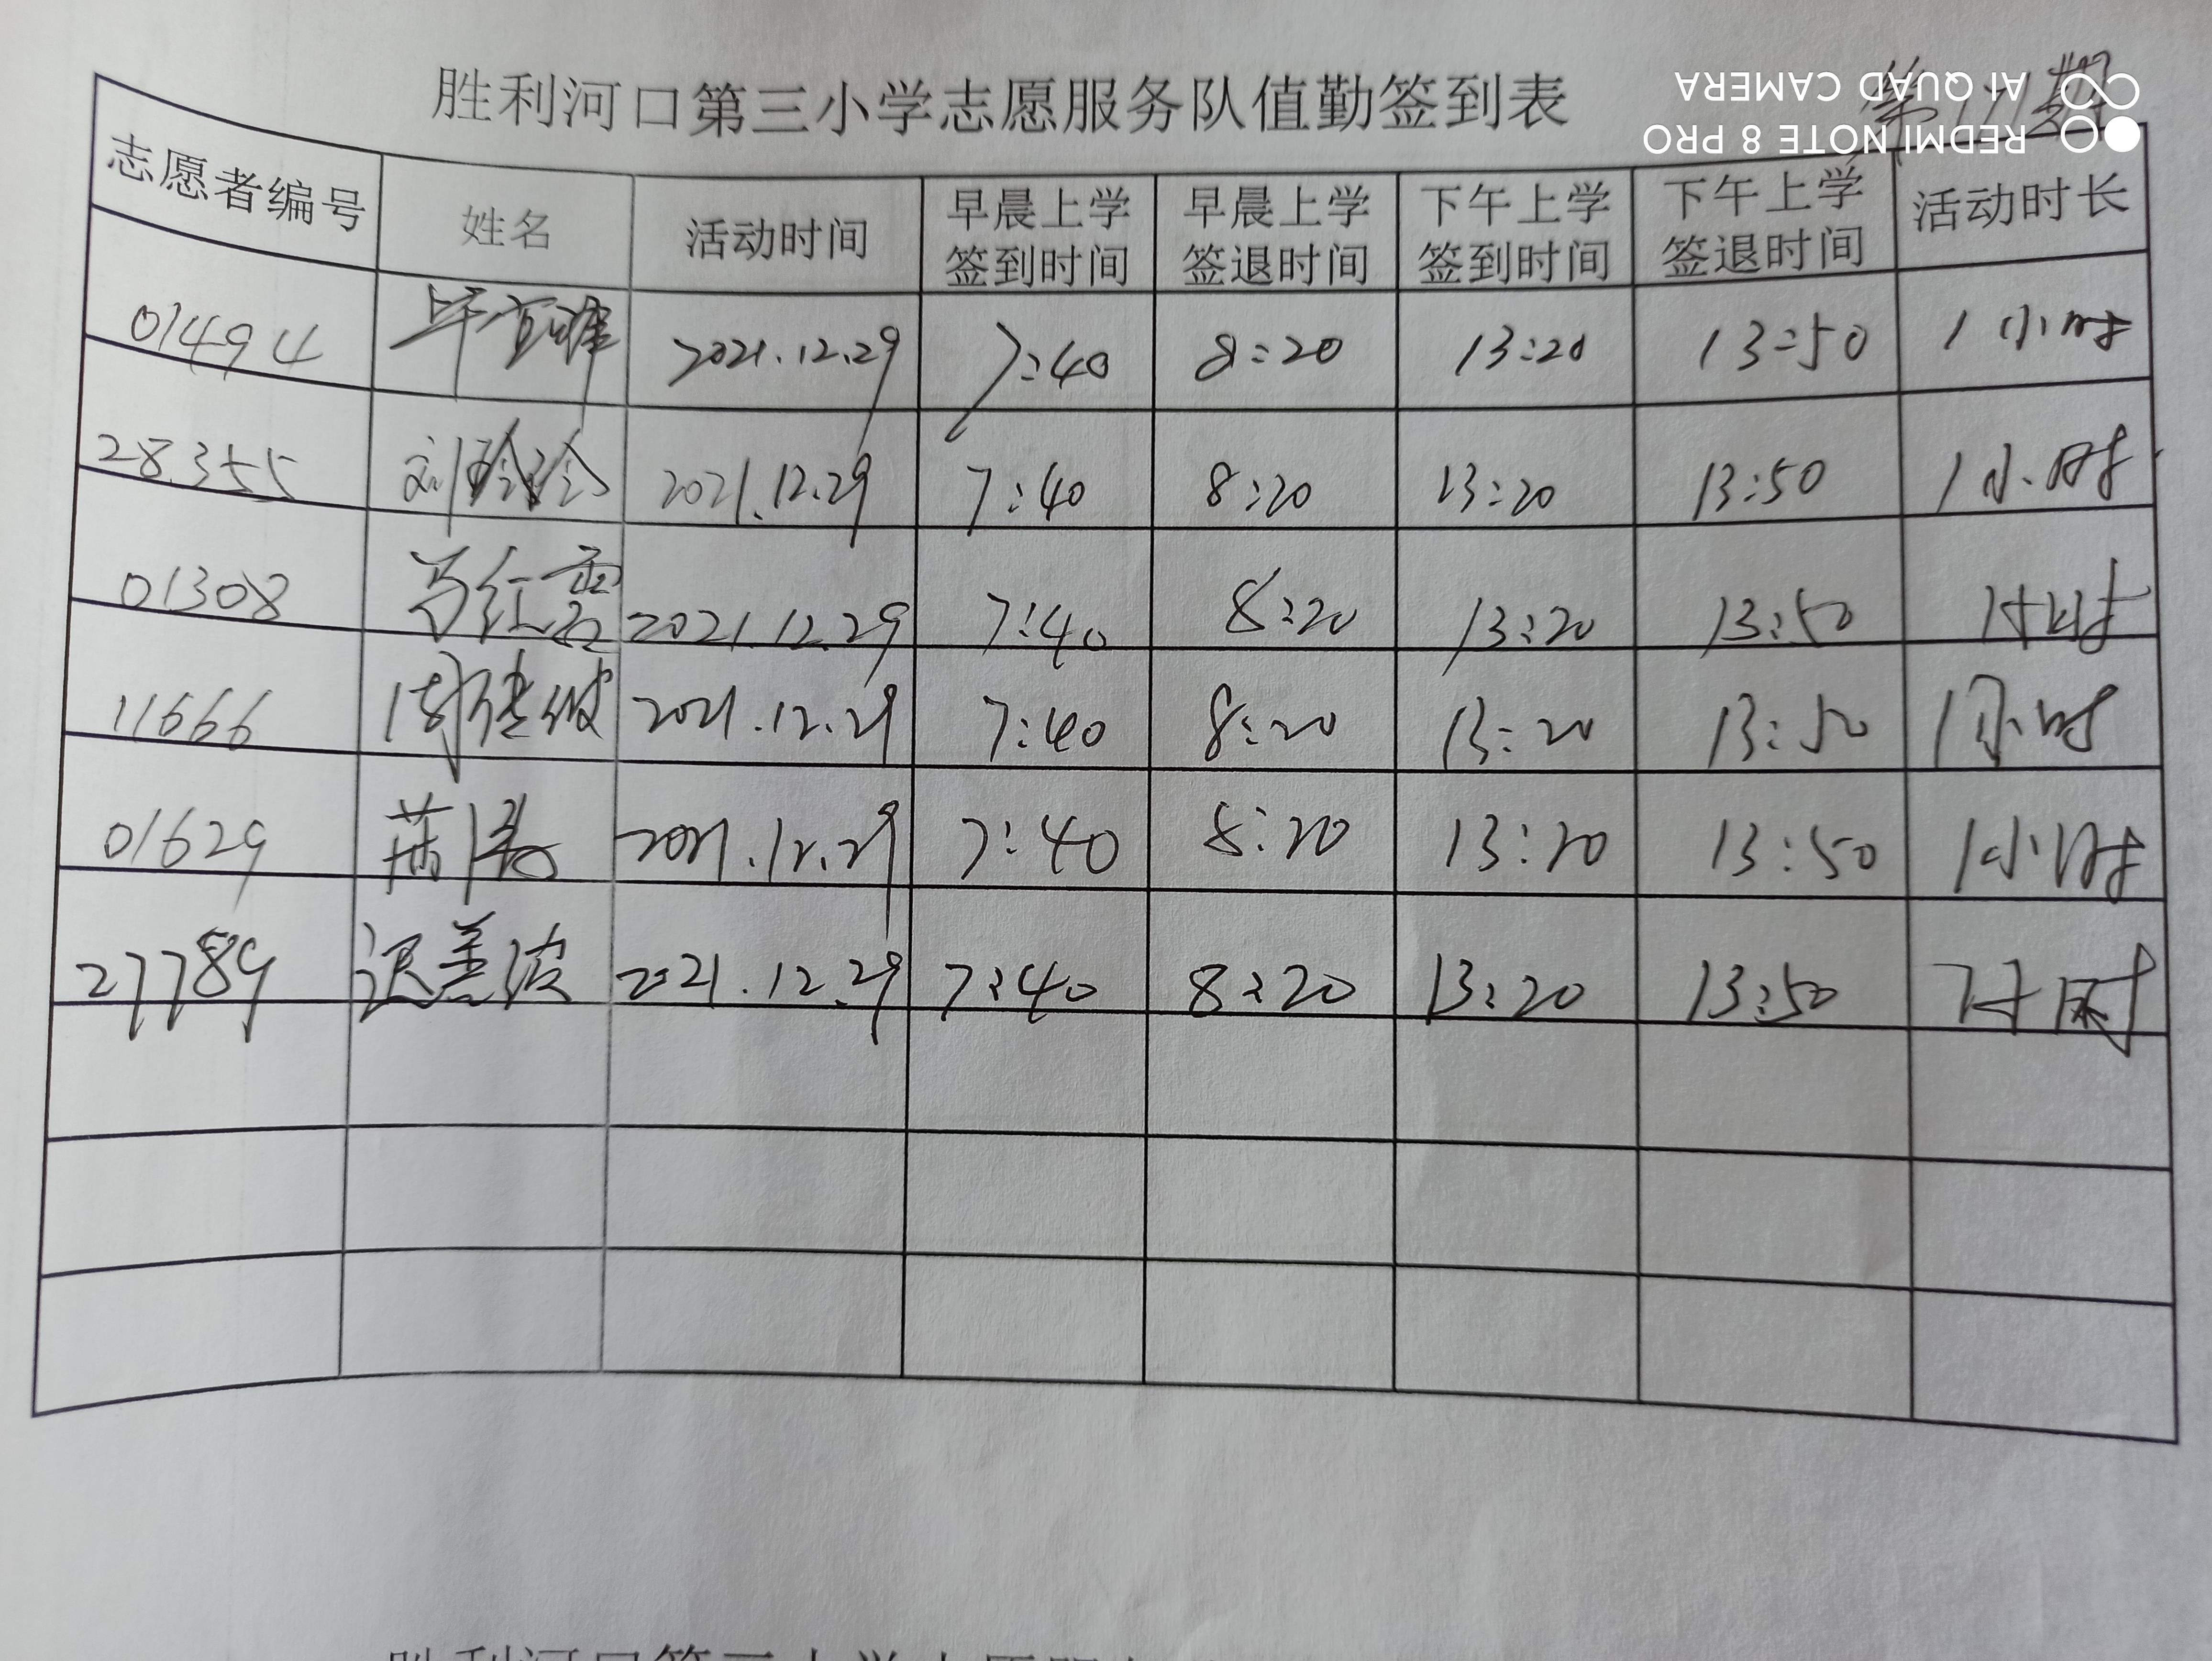 胜利河口第三小学志愿服务队值勤签到表
第 期
AI QUAD CAMERA
REDMI NOTE 8 PRO
志愿者编号 姓名 活动时间 早晨上学签到时间 早晨上学签退时间 下午上学签到时间 下午上学签退时间 活动时长
01494 2021.12.29 7:40 8:20 13:20 13:50 1小时
28355 刘玲玲 2021.12.29 7:40 8:20 13:20 13:50 1小时
01308 马红霞 2021.12.29 7:40 8:20 13:20 13:50 1小时
11666 2021.12.29 7:40 8:20 13:20 13:50 1小时
01629 2021.12.29 7:40 8:20 13:20 13:50 1小时
27789 2021.12.29 7:40 8:20 13:20 13:50 1小时
胜利河口第三小学志愿服